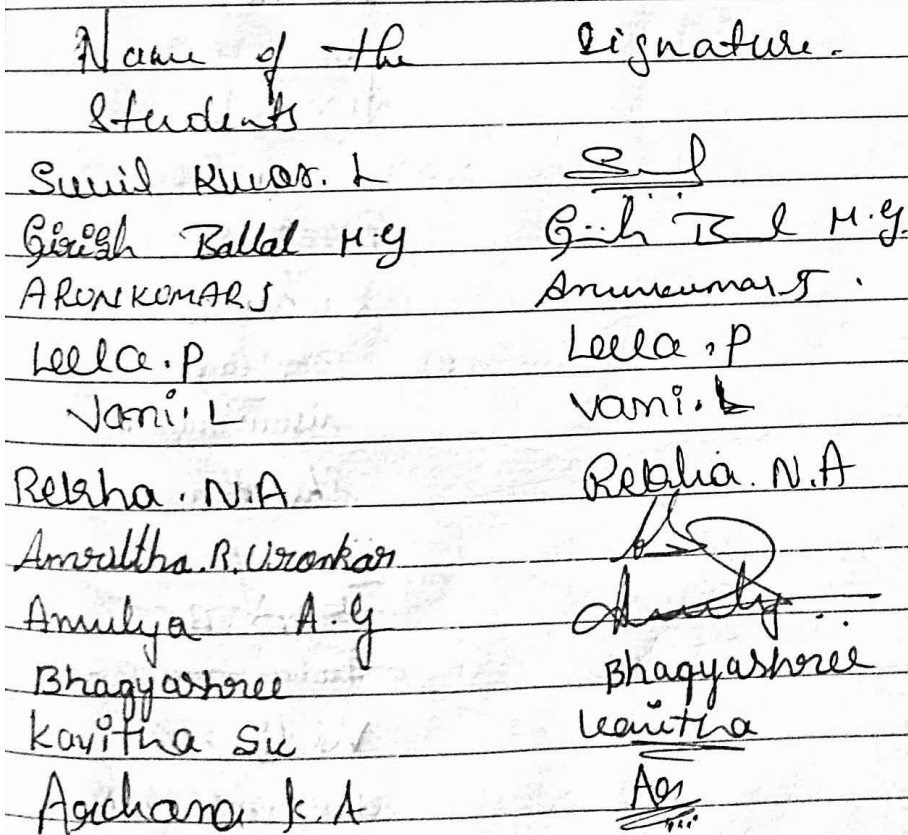 Name of the Signature.
Students
Sunil Kumar. L
Girish Ballal M.G G..h B l M.G.
ARUNKUMAR S Arunkumar S.
Leela.P Leela.P
Vani.L Vani.L
Rekha.N.A Rekha.N.A
Amrultha.R.Urankar
Amulya A.G
Bhagyashree Bhagyashree
Kavitha Kavitha
Archana K.A